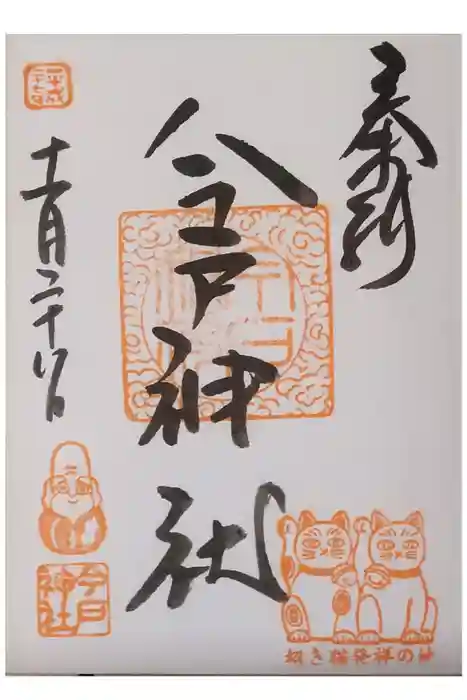 奉拝
今戸神社
十一月二十八日
今戸
神社
招き猫発祥の地